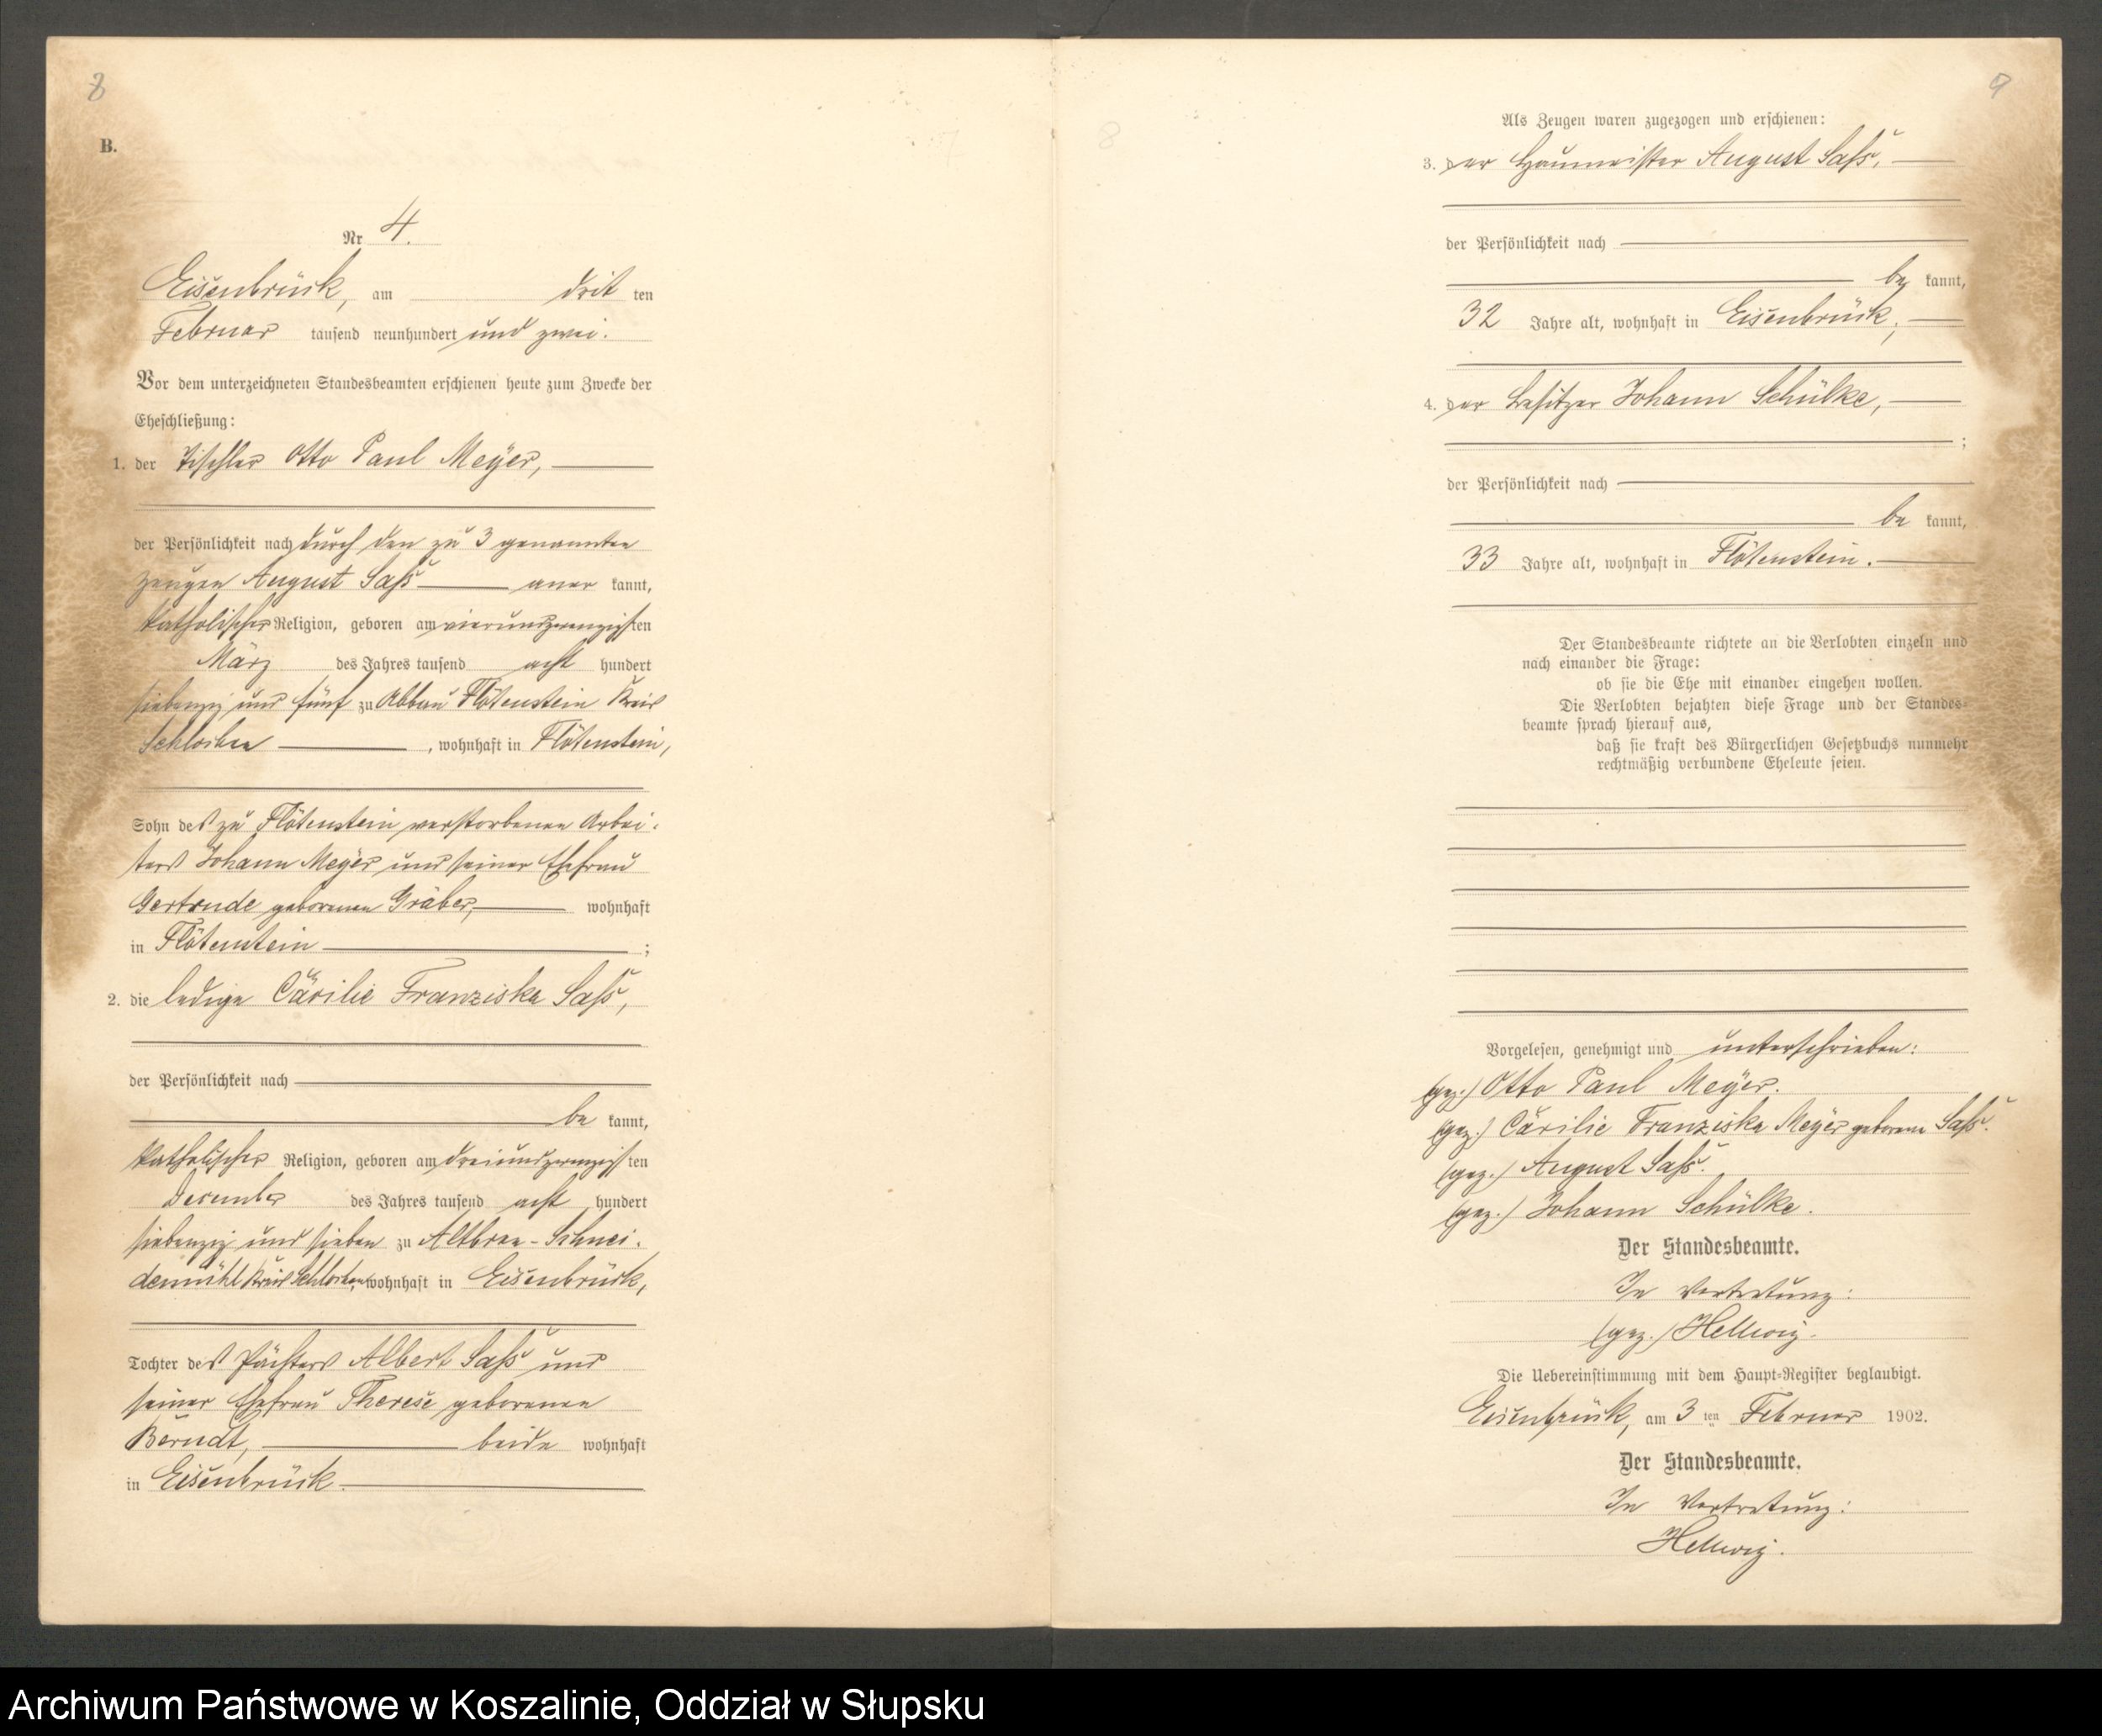 8
B.
Nr 4.
Eisenbrück, am drit ten
Februar tausend neunhundert und zwei.
Vor dem unterzeichneten Standesbeamten erschienen heute zum Zwecke der
Eheschließung:
1. der Tischler Otto Paul Meÿer,
der Persönlichkeit nach durch den zu 3 genannten
Zeugen August Saß aner kannt,
katholischer Religion, geboren am vierundzwanzigsten
März des Jahres tausend acht hundert
siebenzig und fünf zu Abbau Flötenstein Kreis
Schlochau, wohnhaft in Flötenstein,
Sohn des zu Flötenstein verstorbenen Arbei-
ters Johann Meÿer und seiner Ehefrau
Gertrude geborenen Gräber, wohnhaft
in Flötenstein ;
2. die ledige Cäcilie Franziska Saß,
der Persönlichkeit nach
be kannt,
katholischer Religion, geboren am dreiundzwanzigs ten
December des Jahres tausend acht hundert
siebenzig und sieben zu Altbraa-Schnei-
demühl Kreis Schlochau, wohnhaft in Eisenbrück,
Tochter des Pächters Albert Saß und
seiner Ehefrau Therese geborenen
Berndt, beide wohnhaft
in Eisenbrück.
9
8
Als Zeugen waren zugezogen und erschienen:
3. der Haumeister August Saß,
der Persönlichkeit nach
be kannt,
32 Jahre alt, wohnhaft in Eisenbrück,
4. der Besitzer Johann Schülke,
;
der Persönlichkeit nach
be kannt,
33 Jahre alt, wohnhaft in Flötenstein.
Der Standesbeamte richtete an die Verlobten einzeln und
nach einander die Frage:
ob sie die Ehe mit einander eingehen wollen.
Die Verlobten bejahten diese Frage und der Standes-
beamte sprach hierauf aus,
daß sie kraft des Bürgerlichen Gesetzbuchs nunmehr
rechtmäßig verbundene Eheleute seien.
Vorgelesen, genehmigt und unterschrieben:
(gez.) Otto Paul Meÿer.
(gez.) Cäcilie Franziska Meÿer geborene Saß.
(gez.) August Saß.
(gez.) Johann Schülke.
Der Standesbeamte.
In Vertretung:
(gez.) Hellwig.
Die Uebereinstimmung mit dem Haupt-Register beglaubigt.
Eisenbrück, am 3 ten Februar 1902.
Der Standesbeamte.
In Vertretung:
Hellwig.
Archiwum Państwowe w Koszalinie, Oddział w Słupsku